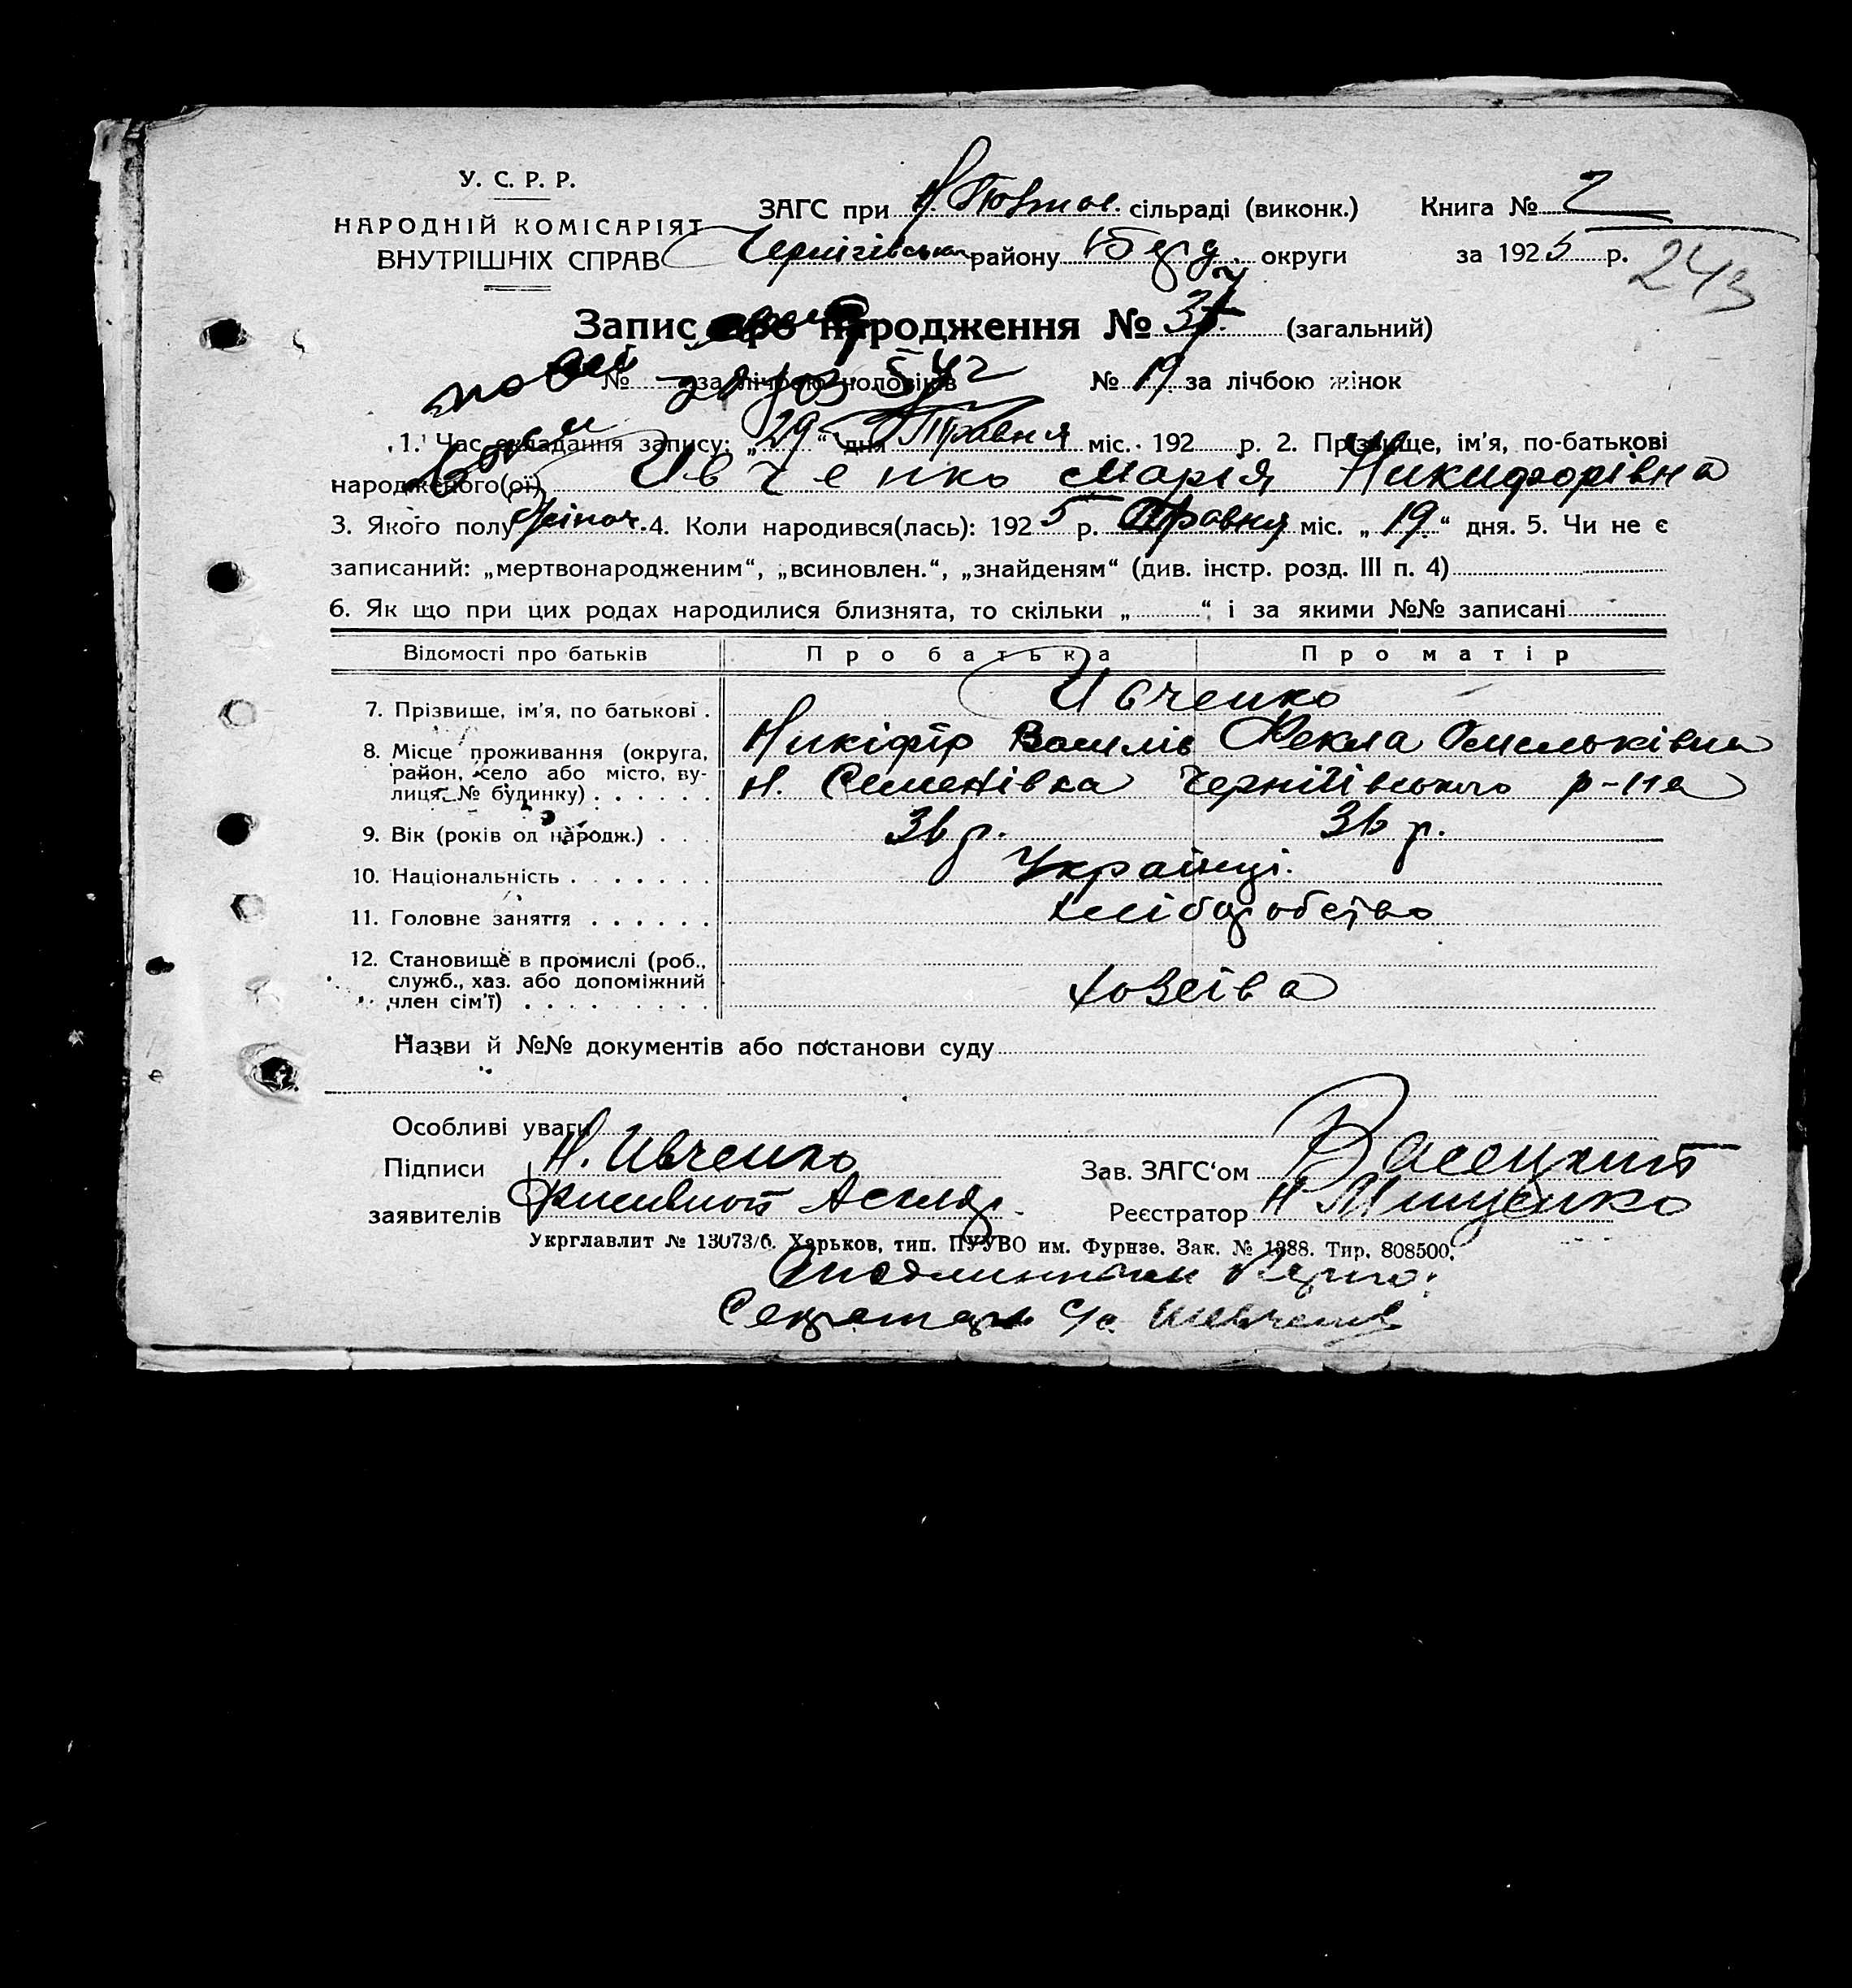 У. С. Р. Р.
НАРОДНІЙ КОМІСАРІЯТ
ВНУТРІШНІХ СПРАВ
ЗАГС при Н. сільраді (виконк.) Книга № 2
району округи за 1925 р.
243
Запис про народження № 37 (загальний)
№ за лічбою чоловіків № 19 за лічбою жінок
1. Час складання запису: „29“ дня Травня міс. 192 р. 2. Прізвище, ім'я, по-батькові
народженого(ої) Ивченко Марія Никифорівна
3. Якого полу жіноч. 4. Коли народився(лась): 1925 р. Травня міс. „19“ дня. 5. Чи не є
записаний: „мертвонародженим“, „всиновлен.“, „знайденям“ (див. інстр. розд. III п. 4)
6. Як що при цих родах народилися близнята, то скільки „ “ і за якими №№ записані
Відомості про батьків Про батька Про матір
7. Прізвище, ім'я, по батькові . Ивченко
Никіфір Василів Фекла Омельківна
8. Місце проживання (округа,
район, село або місто, ву-
лиця № будинку) . . . . . . Н. Семенівка Чернігівського р-на
9. Вік (років од народж.) . . . 36 р. 36 р.
10. Національність . . . . . . . Українці.
11. Головне заняття . . . . . . хліборобство
12. Становище в промислі (роб.,
служб., хаз. або допоміжний
член сім'ї) . . . . . . . . Хозяіва
Назви й №№ документів або постанови суду
Особливі уваги
Підписи Н. Ивченко Зав. ЗАГС'ом Васецкий
заявителів Реєстратор Н Мищенко
Укрглавлит № 13073/б. Харьков, тип. ПУУВО им. Фурнзе. Зак. № 1388. Тир. 808500.
Секретарь с/с.